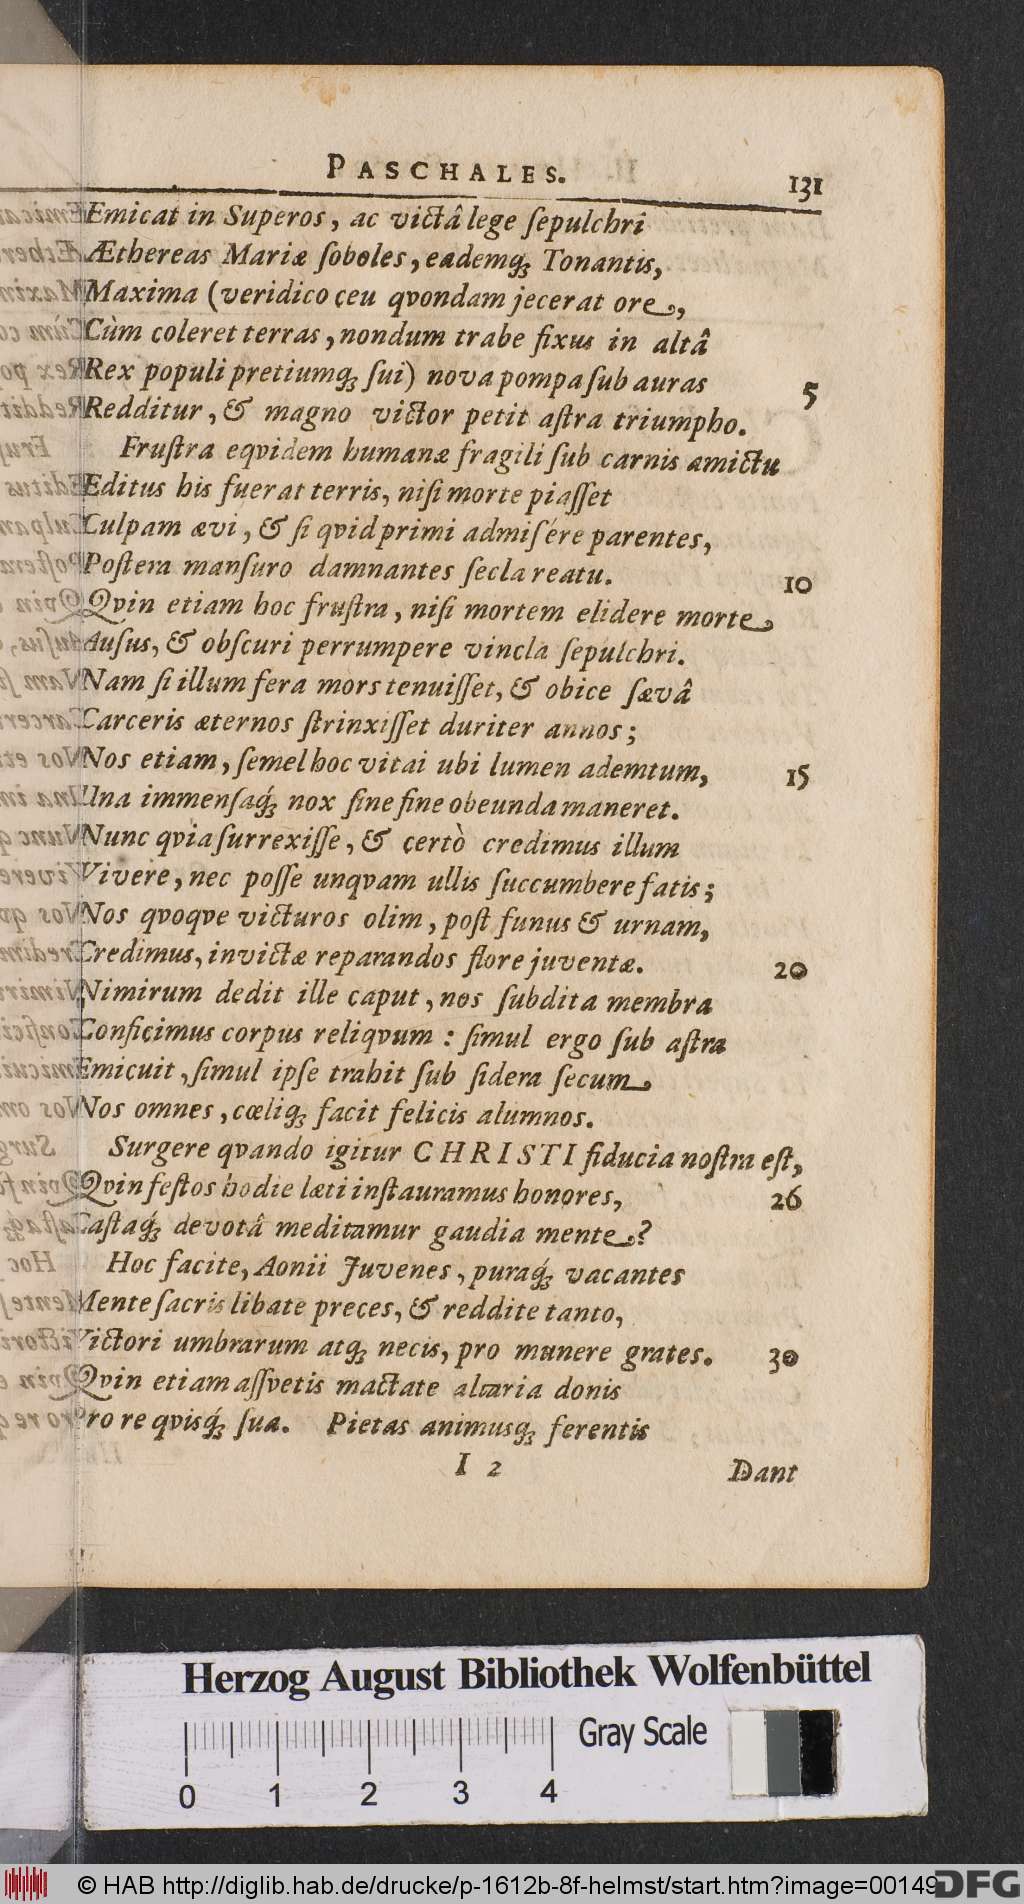 PASCHALES.
131
Emicat in Superos, ac victâ lege ſepulchri
Æthereas Mariæ ſoboles, eademq́; Tonantis,
Maxima (veridico ceu qvondam jecerat ore,
Cùm coleret terras, nondum trabe fixus in altâ
Rex populi pretiumq; ſui) nova pompa ſub auras 5
Redditur, & magno victor petit aſtra triumpho.
Fruſtra eqvidem humanæ fragili ſub carnis amictu
Editus his fuerat terris, niſi morte piaſſet
Culpam ævi, & ſi qvid primi admiſére parentes,
Poſtera manſuro damnantes ſecla reatu. 10
Qvin etiam hoc fruſtra, niſi mortem elidere morte
Auſus, & obſcuri perrumpere vincla ſepulchri.
Nam ſi illum fera mors tenuiſſet, & obice ſævâ
Carceris æternos ſtrinxiſſet duriter annos;
Nos etiam, ſemel hoc vitai ubi lumen ademtum, 15
Una immenſaq́; nox ſine fine obeunda maneret.
Nunc qvia ſurrexiſſe, & certò credimus illum
Vivere, nec poſſe unqvam ullis ſuccumbere fatis;
Nos qvoqve victuros olim, poſt funus & urnam,
Credimus, invictæ reparandos flore juventæ. 20
Nimirum dedit ille caput, nos ſubdita membra
Conficimus corpus reliqvum: ſimul ergo ſub aſtra
Emicuit, ſimul ipſe trahit ſub ſidera ſecum
Nos omnes, cœliq; facit felicis alumnos.
Surgere qvando igitur CHRISTI fiducia noſtra eſt,
Qvin feſtos hodie læti inſtauramus honores, 26
Caſtaq́; devotâ meditamur gaudia mente?
Hoc facite, Aonii Juvenes, puraq́; vacantes
Mente ſacris libate preces, & reddite tanto,
Victori umbrarum atq; necis, pro munere grates. 30
Qvin etiam aſſvetis mactate altaria donis
Pro re qvisq́; ſua. Pietas animusq; ferentis
I 2
Dant
Herzog August Bibliothek Wolfenbüttel
Gray Scale
0 1 2 3 4
© HAB http://diglib.hab.de/drucke/p-1612b-8f-helmst/start.htm?image=00149
DFG